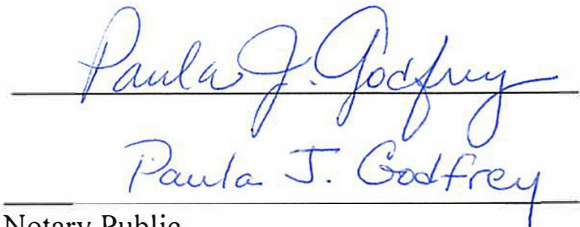 Paula J. Godfrey
Paula J. Godfrey
Notary Public